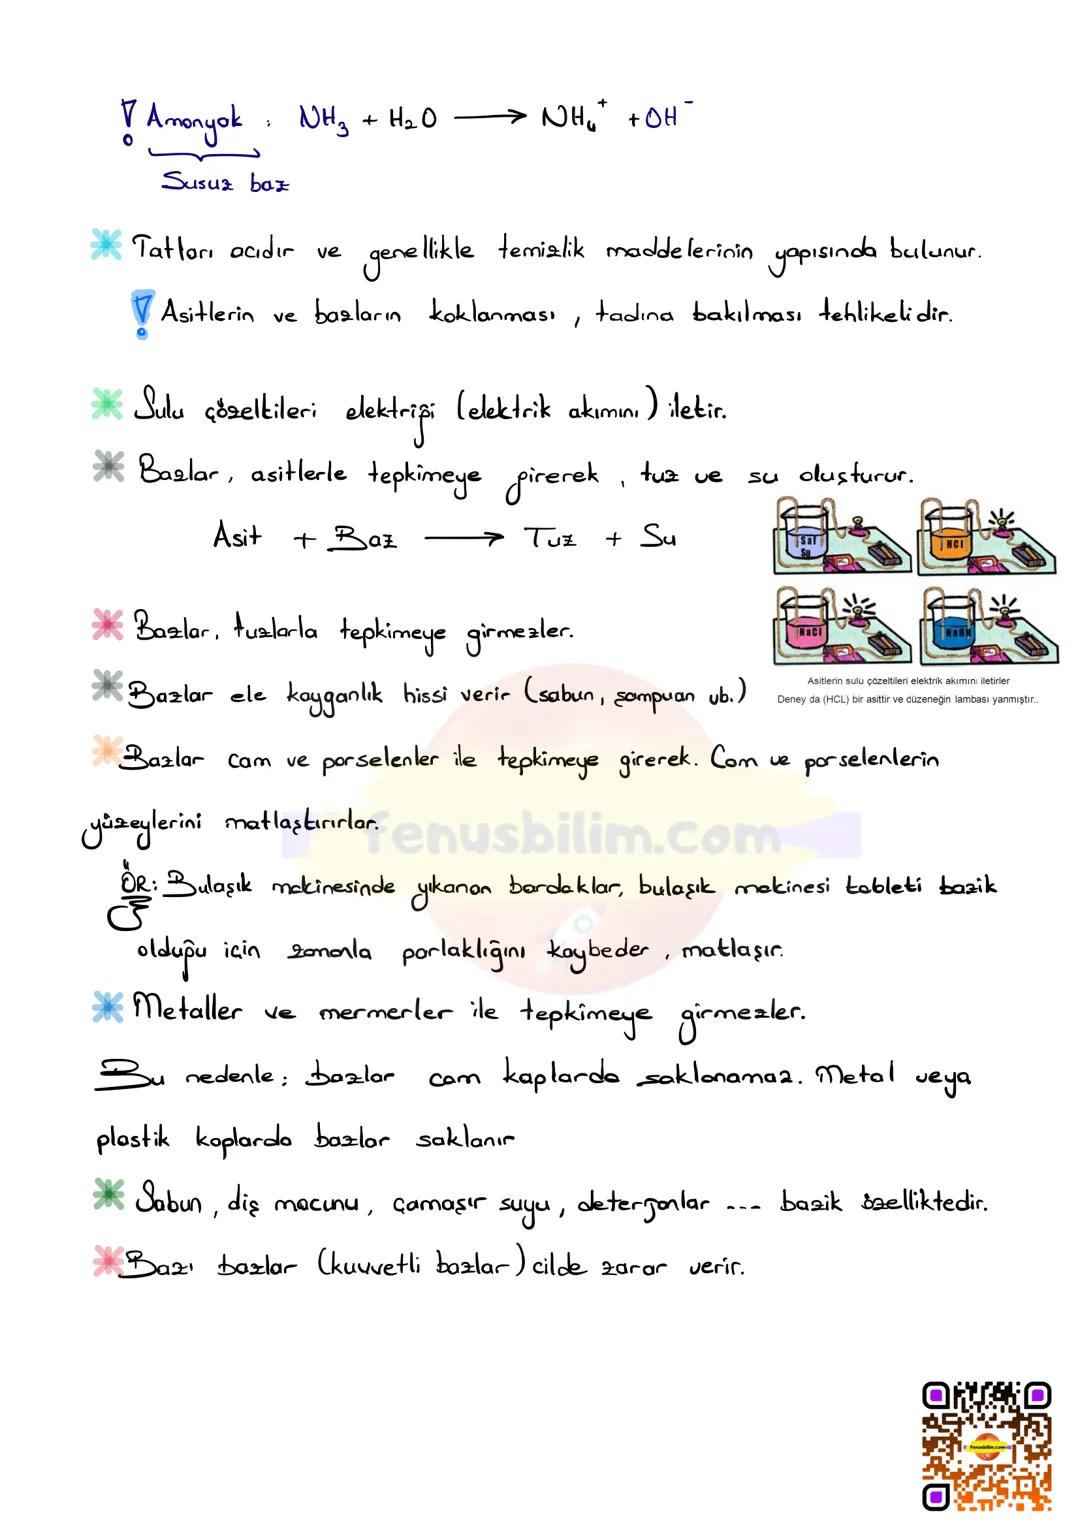 ! Amonyak : NH₃ + H₂O ⟶ NH₄⁺ + OH⁻
Susuz baz
Tatları acıdır ve genellikle temizlik maddelerinin yapısında bulunur.
! Asitlerin ve bazların koklanması, tadına bakılması tehlikelidir.
Sulu çözeltileri elektriği (elektrik akımını) iletir.
Bazlar, asitlerle tepkimeye girerek, tuz ve su oluşturur.
Asit + Baz ⟶ Tuz + Su
Saf Su
HCl
NaCl
NaOH
Asitlerin sulu çözeltileri elektrik akımını iletirler
Deney da (HCL) bir asittir ve düzeneğin lambası yanmıştır..
Bazlar, tuzlarla tepkimeye girmezler.
Bazlar ele kayganlık hissi verir (sabun, şampuan vb.)
Bazlar cam ve porselenler ile tepkimeye girerek. Cam ve porselenlerin
yüzeylerini matlaştırırlar.
fenusbilim.com
ÖR: Bulaşık makinesinde yıkanan bardaklar, bulaşık makinesi tableti bazik
olduğu için zamanla parlaklığını kaybeder, matlaşır.
Metaller ve mermerler ile tepkimeye girmezler.
Bu nedenle; bazlar cam kaplarda saklanamaz. Metal veya
plastik kaplarda bazlar saklanır
Sabun, diş macunu, çamaşır suyu, deterjanlar ... bazik özelliktedir.
Bazı bazlar (kuvvetli bazlar) cilde zarar verir.
fenusbilim.com